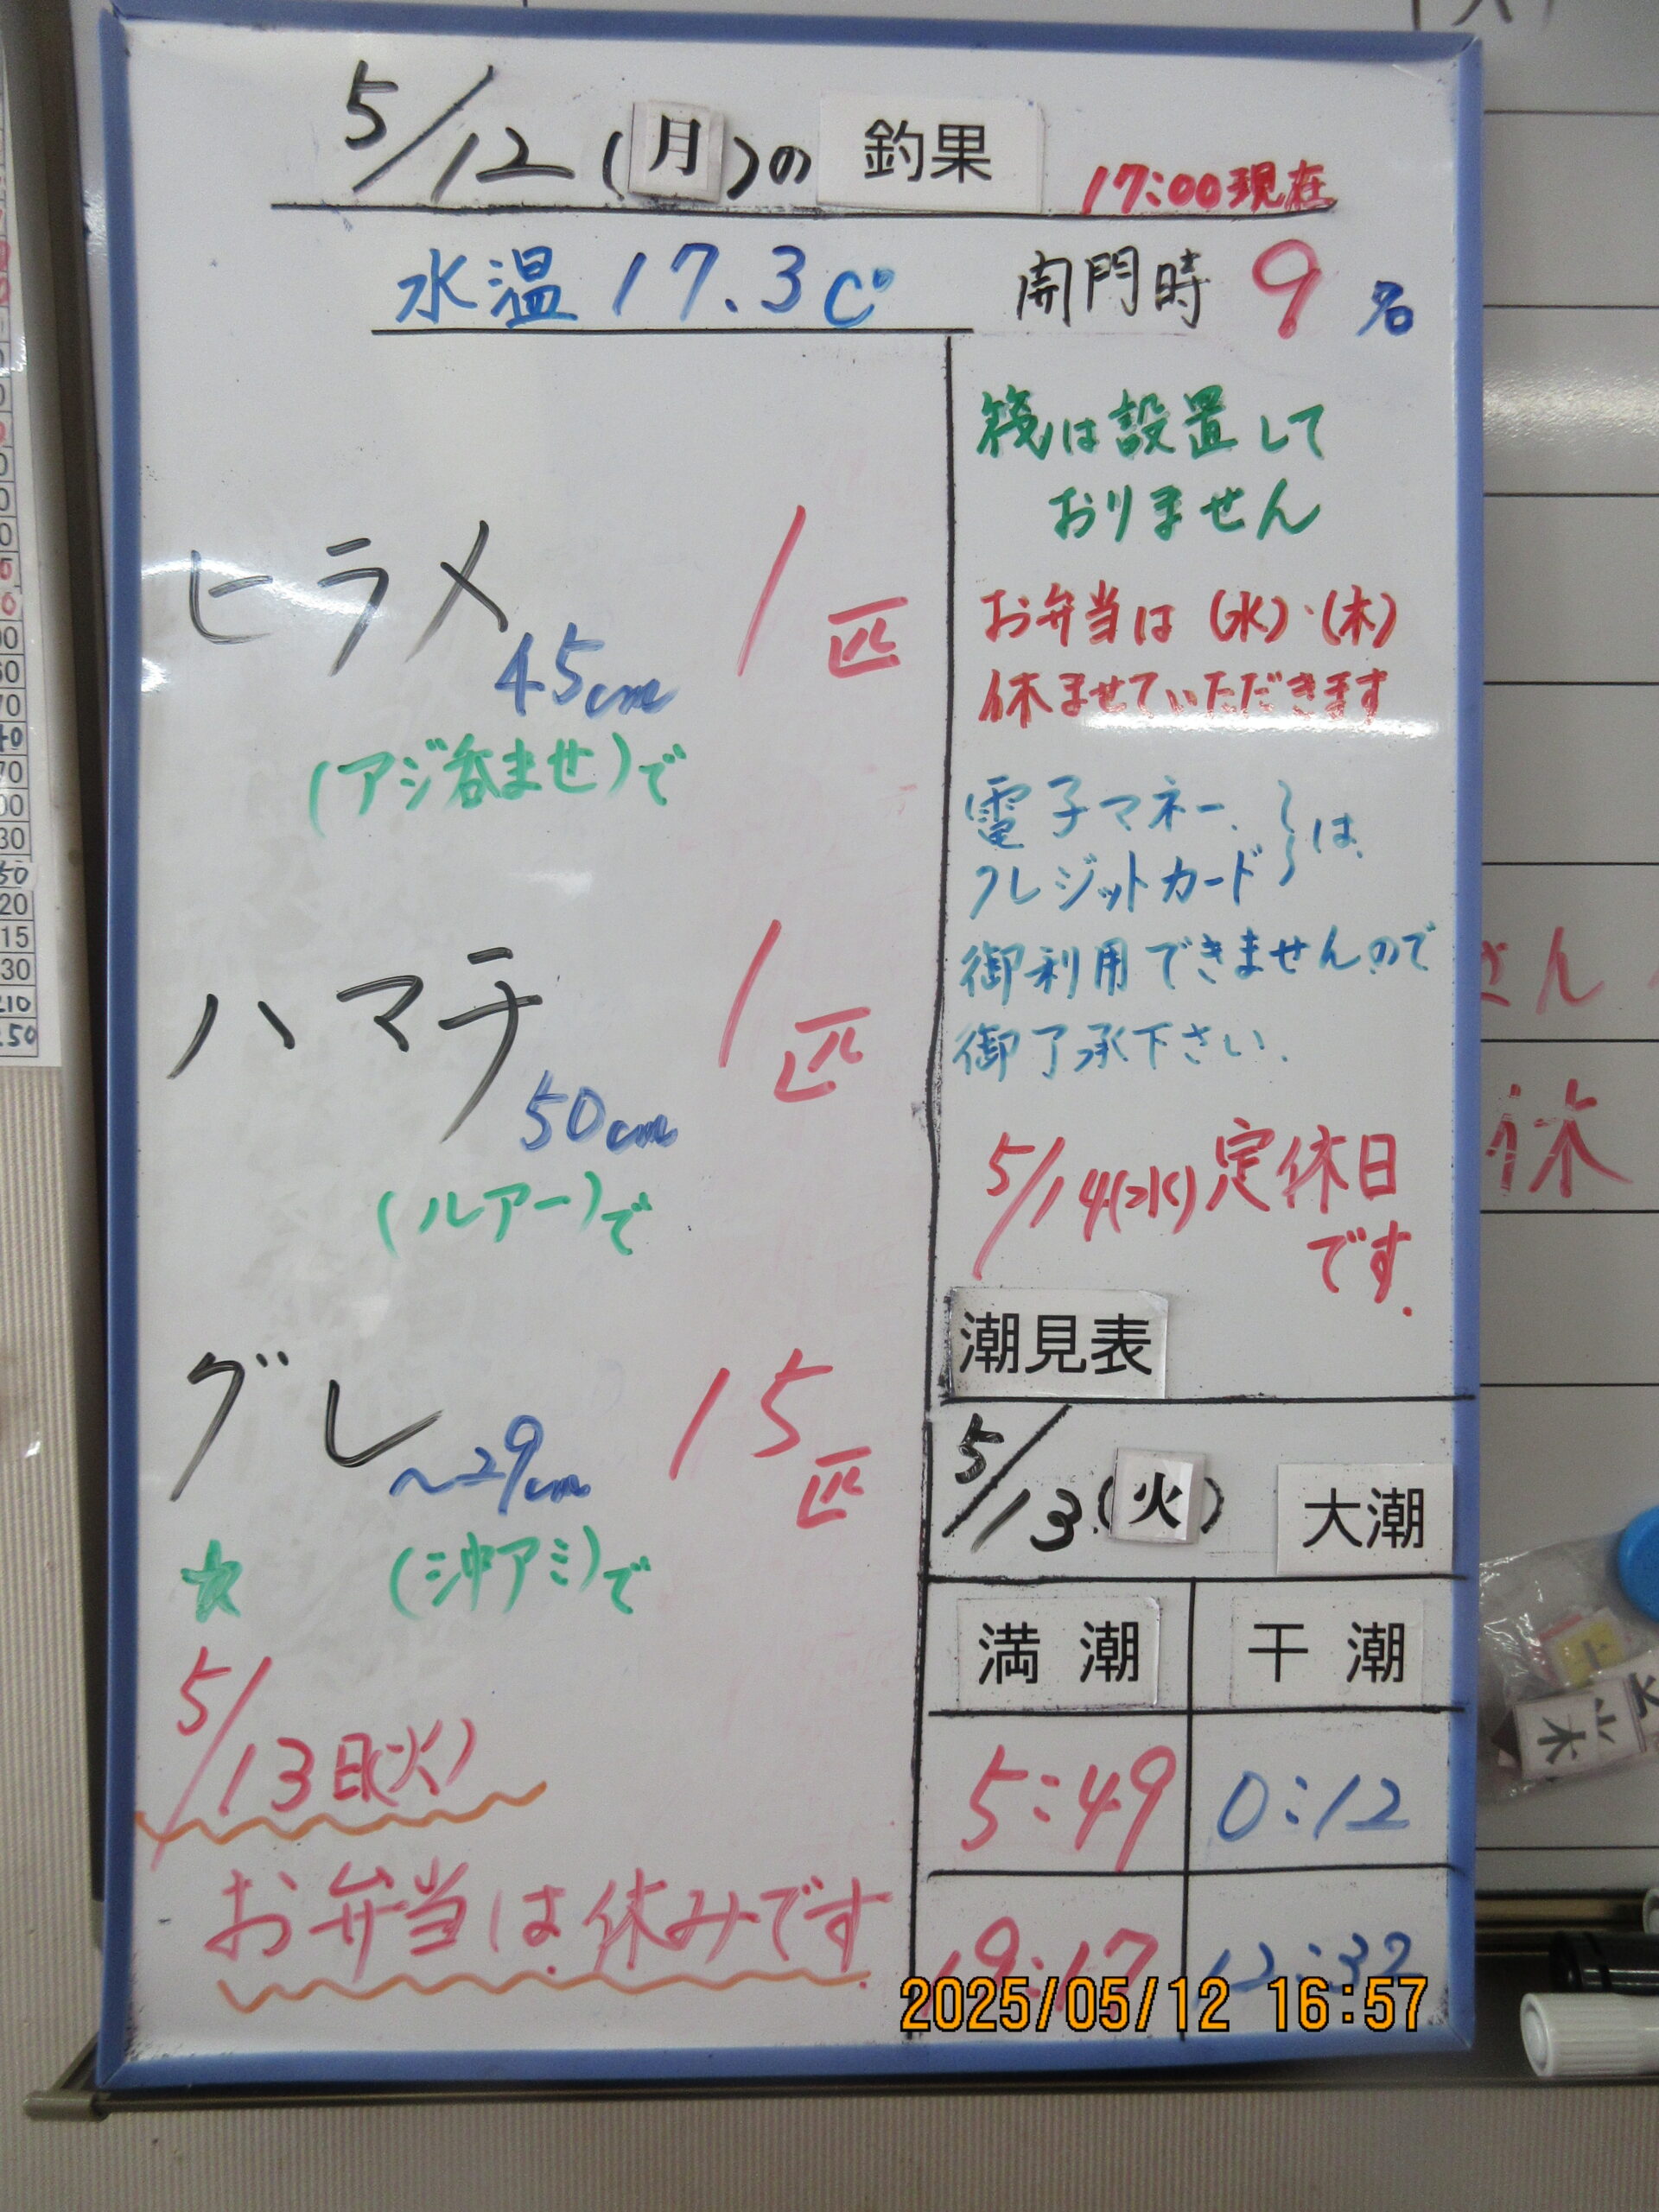 5/12(月)の 釣果 17:00現在
水温 17.3C° 開門時 9名
ヒラメ 45cm 1匹
(アジ呑ませ)で
ハマチ 50cm 1匹
(ルアー)で
グレ ~29cm 15匹
★ (沖アミ)で
5/13日(火)
お弁当は休みです
筏は設置して
おりません
お弁当は(水)・(木)
休ませていただきます
電子マネー、
クレジットカード}は
御利用できませんので
御了承下さい.
5/14(水)定休日
です.
潮見表
5/13(火) 大潮
満潮 干潮
5:49 0:12
19:17 12:32
2025/05/12 16:57
さん
休